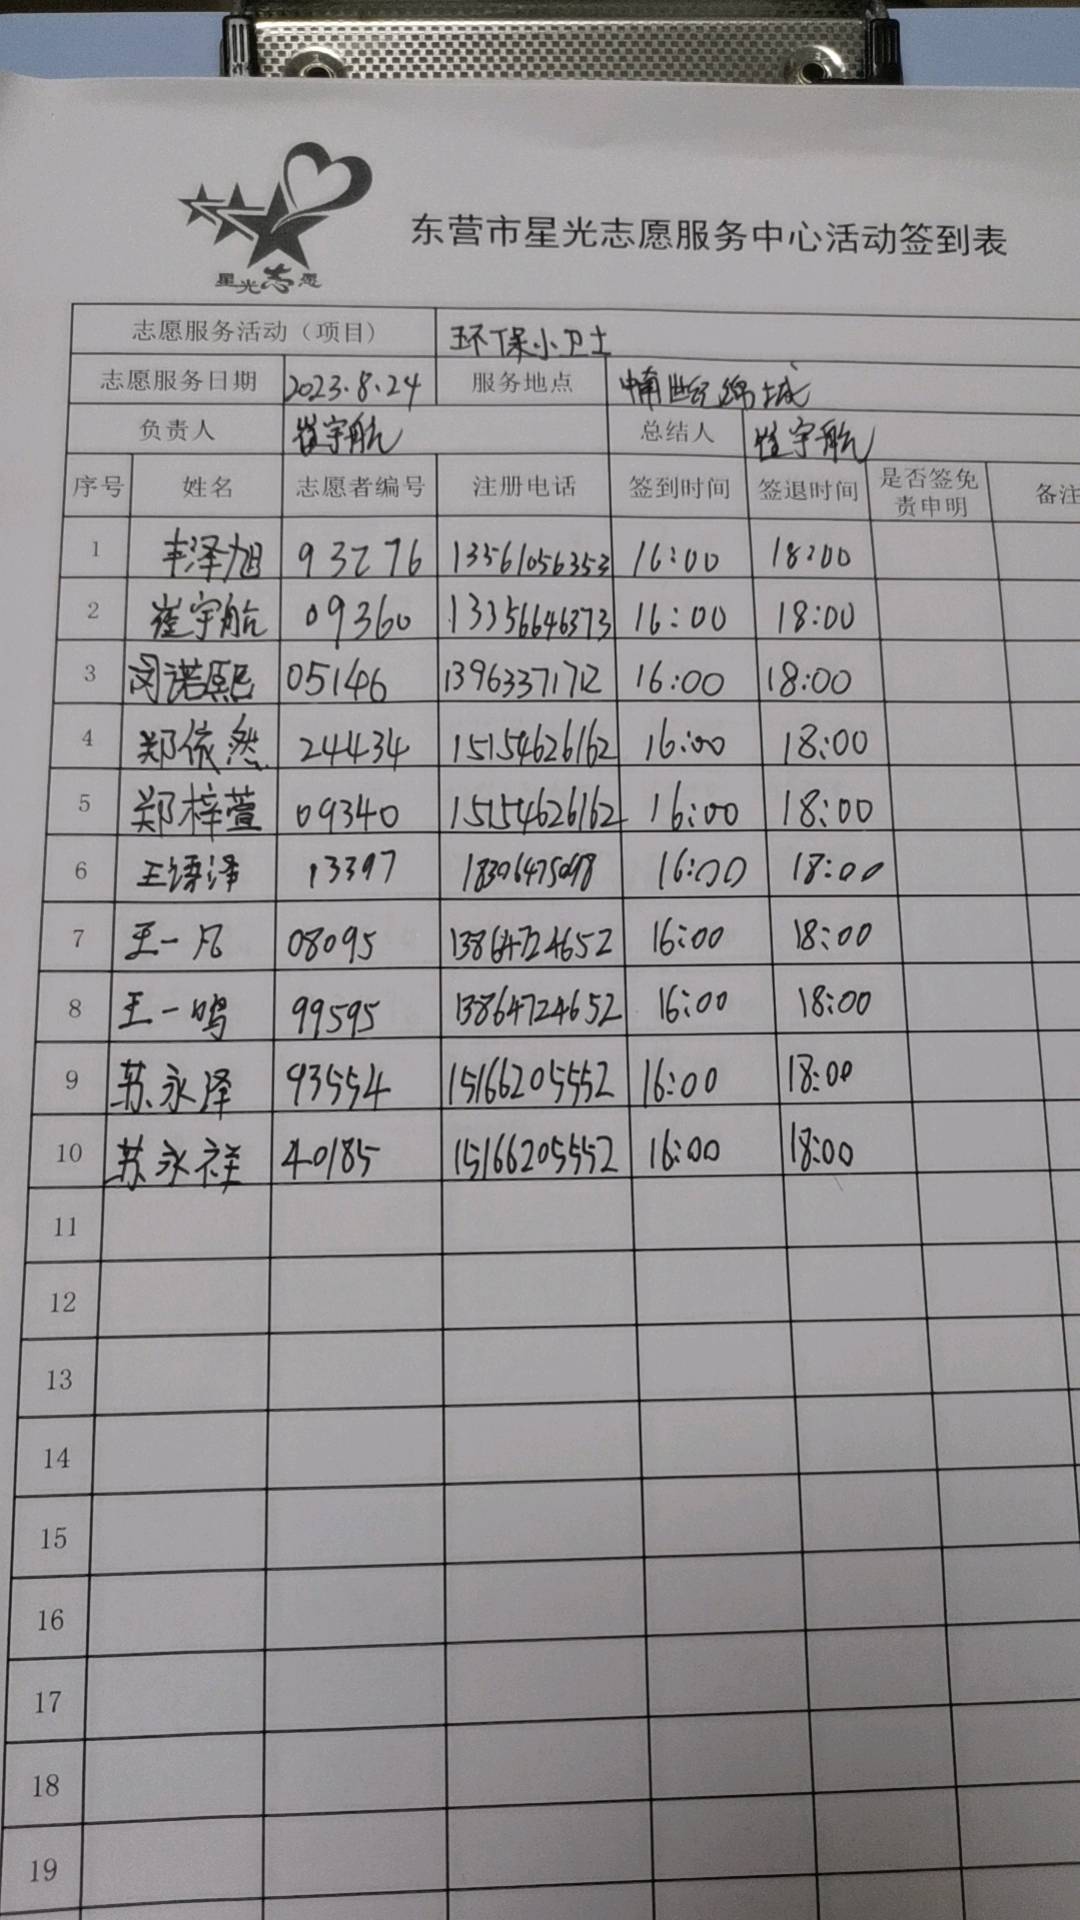 星光志愿
东营市星光志愿服务中心活动签到表
志愿服务活动（项目） 环保小卫士
志愿服务日期 2023.8.24 服务地点 世纪锦城
负责人 崔宇航 总结人 崔宇航
序号 姓名 志愿者编号 注册电话 签到时间 签退时间 是否签免责申明 备注
1 丰泽旭 93276 13561056353 16:00 18:00
2 崔宇航 09360 13356646373 16:00 18:00
3 闵诺熙 05146 13963371712 16:00 18:00
4 郑依然 24434 15154626162 16:00 18:00
5 郑梓萱 09340 15154626162 16:00 18:00
6 13397 16:00 18:00
7 王一凡 08095 13864724652 16:00 18:00
8 王一鸣 99595 13864724652 16:00 18:00
9 苏永泽 93554 15166205552 16:00 18:00
10 苏永祥 40185 15166205552 16:00 18:00
11
12
13
14
15
16
17
18
19